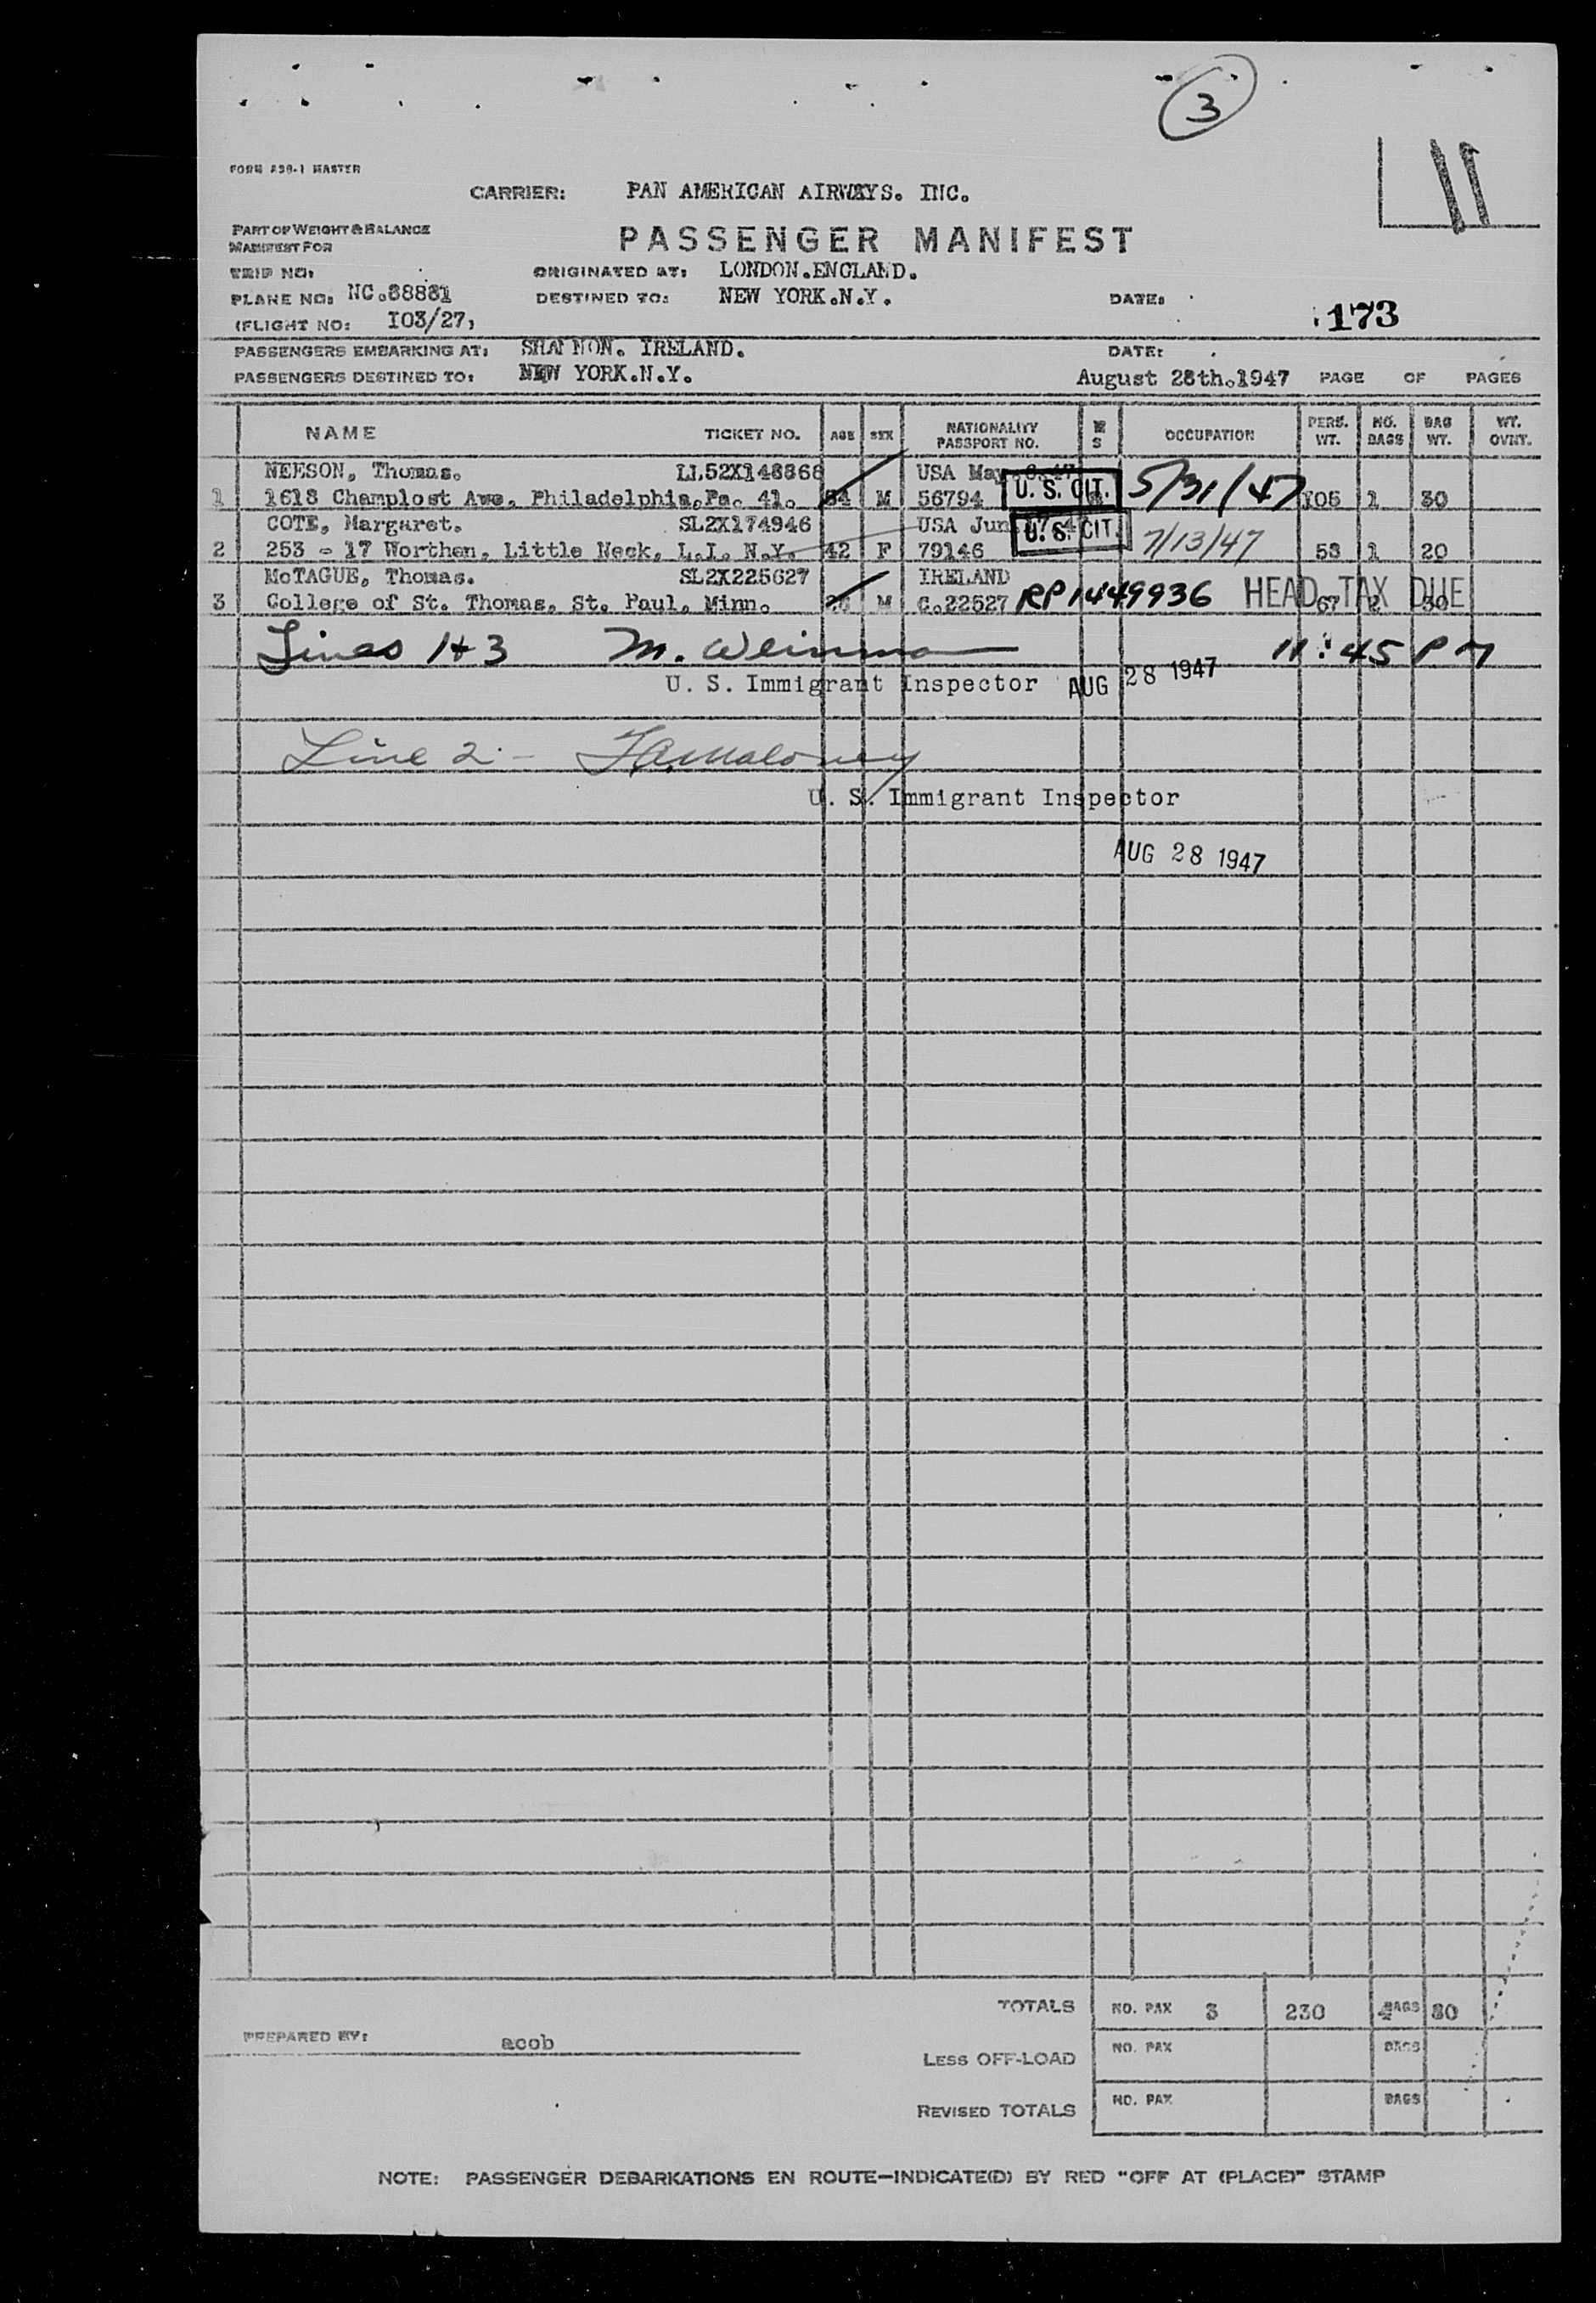 3
11
FORM 230-1 MASTER
CARRIER: PAN AMERICAN AIRWAYS. INC.
PART OF WEIGHT & BALANCE
MANIFEST FOR
PASSENGER MANIFEST
TRIP NO: ORIGINATED AT: LONDON.ENGLAND.
PLANE NO: NC.88831 DESTINED TO: NEW YORK.N.Y. DATE:
(FLIGHT NO: I03/27, 173
PASSENGERS EMBARKING AT: SHANNON. IRELAND. DATE:
PASSENGERS DESTINED TO: NEW YORK.N.Y. August 28th.1947 PAGE OF PAGES
NAME TICKET NO. AGE SEX NATIONALITY PASSPORT NO. M S OCCUPATION PERS. WT. NO. BAGS BAG WT. WT. OVHT.
NEESON, Thomas. LL52X148868 USA May
1 1618 Champlost Awe. Philadelphia.Pa. 41. M 56794 U. S. CIT. 5/31/47 105 1 30
COTE, Margaret. SL2X174946 USA Jun
2 253 - 17 Worthen, Little Neck, L.I. N.Y. 42 F 79146 U. S. CIT. 7/13/47 58 1 20
McTAGUE, Thomas. SL2X225627 IRELAND
3 College of St. Thomas, St. Paul. Minn. M C.22527 RP1449936 HEAD TAX DUE 67 2 30
Lines 1+3 M. Weinman 11:45 PM
U. S. Immigrant Inspector AUG 28 1947
Line 2 - F.A. Maloney
U. S. Immigrant Inspector
AUG 28 1947
TOTALS NO. PAX 3 230 4 BAGS 80
PREPARED BY: acob
LESS OFF-LOAD NO. PAX BAGS
REVISED TOTALS NO. PAX BAGS
NOTE: PASSENGER DEBARKATIONS EN ROUTE—INDICATE(D) BY RED "OFF AT (PLACE)" STAMP